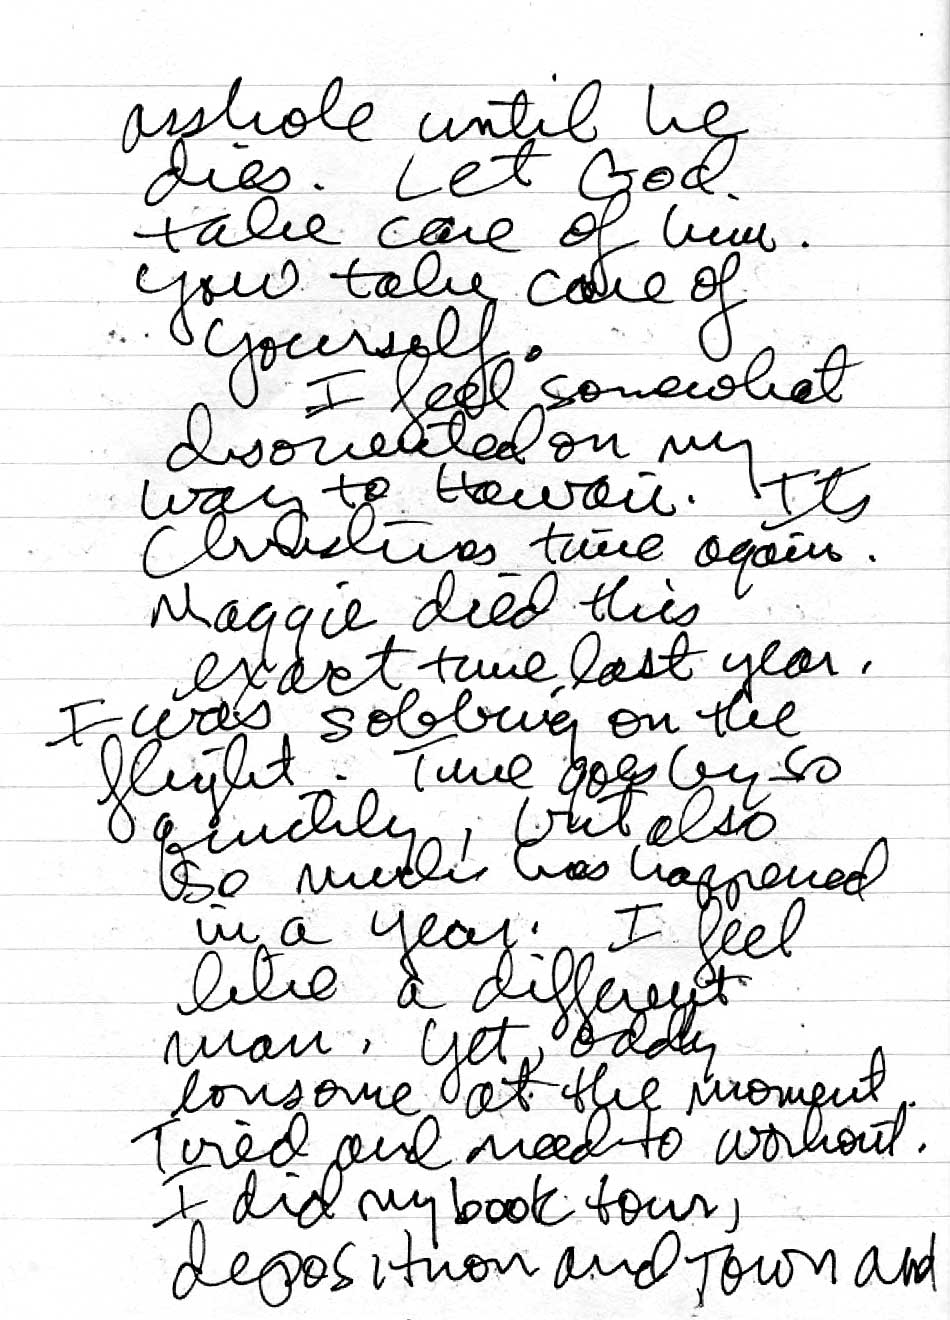 asshole until he
dies. Let God
take care of him.
You take care of
yourself.
I feel somewhat
disoriented on my
way to Hawaii. Its
Christmas time again.
Maggie died this
exact time last year.
I was sobbing on the
flight. Time goes by so
quickly, but also
so much has happened
in a year. I feel
like a different
man. Yet, oddly
lonsome at the moment.
Tired and need to workout.
I did my book tour,
deposition and Town and